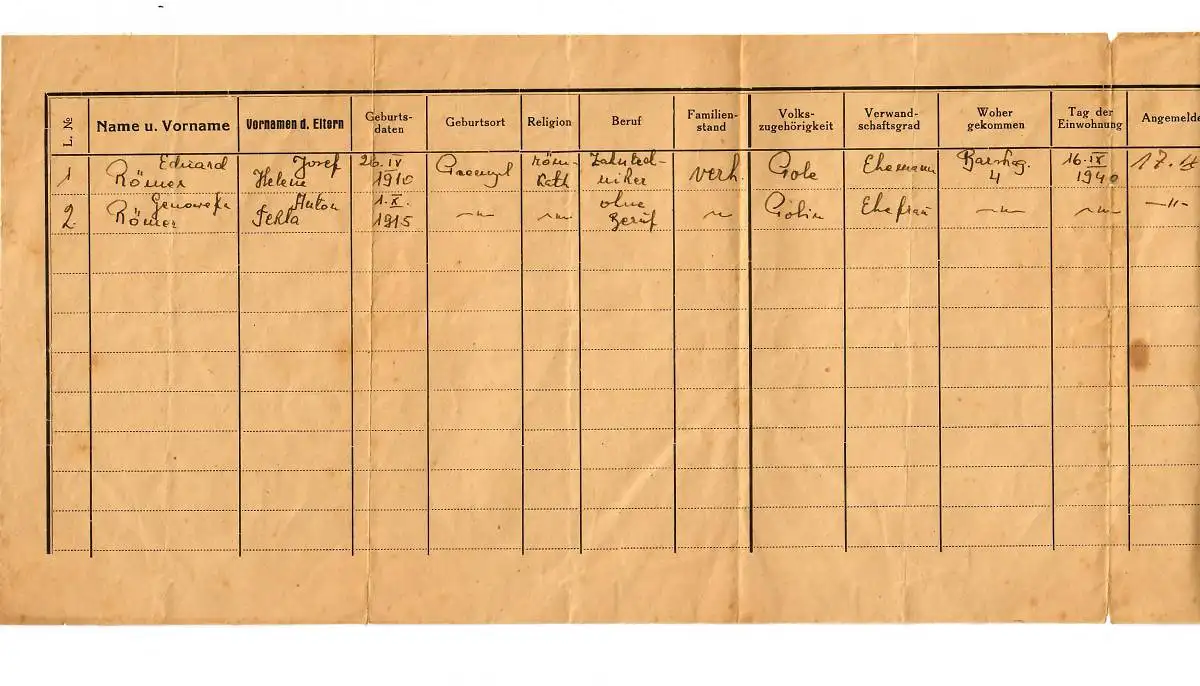 L. №
Name u. Vorname
Vornamen d. Eltern
Geburts-
daten
Geburtsort
Religion
Beruf
Familien-
stand
Volks-
zugehörigkeit
Verwand-
schaftsgrad
Woher
gekommen
Tag der
Einwohnung
Angemelde
1
Eduard
Römer
Josef
Helene
26.IV
1910
röm-
Kath
Zahntech-
niker
verh.
Pole
Ehemann
4
16.IX
1940
17.
2.
Genowefa
Römer
Anton
Tekla
1.X.
1915
-〃-
-〃-
ohne
Beruf
〃
Polin
Ehefrau
-〃-
-〃-
-〃-